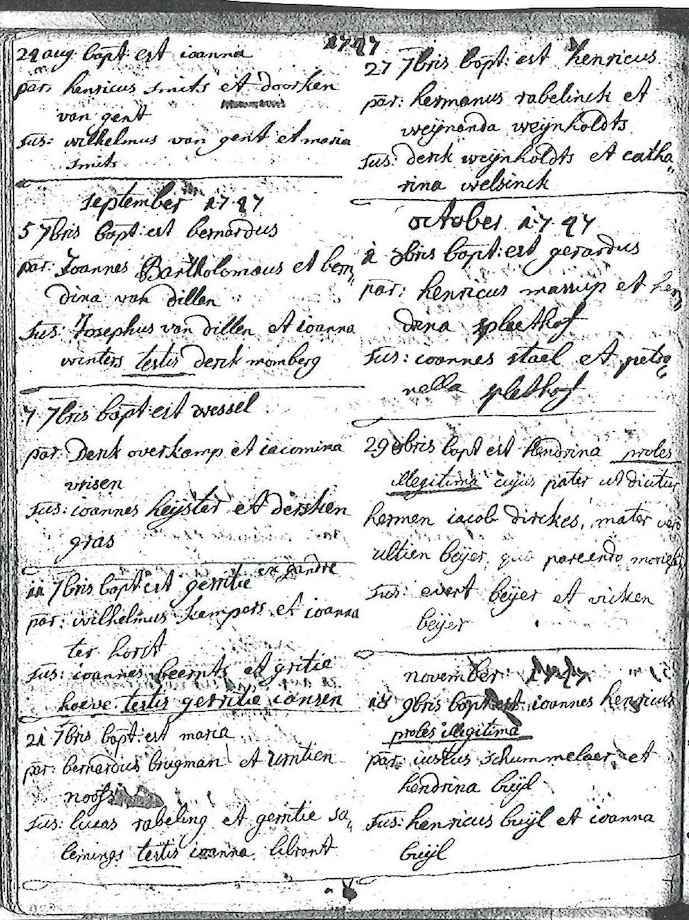 1747
24 aug bapt: est ioanna
par: henricus smits et doorken
van gent
sus: wilhelmus van gent et maria
smits
september 1747
5 7bris bapt: est bernardus
par: Joannes Bartholomaus et bern„
dina van dillen
sus: Josephus van dillen et ioanna
winters testis derck momberg
7 7bris bapt: est wessel
par: Derck overkamp et iacomina
vrisen
sus: ioannes heijster et dersken
gras
11 7bris bapt: est gerritie
par: wilhelmus kempers et ioanna
ter horst
sus: ioannes beernts et gritie
hoeve testis gerritie iansen
21 7bris bapt: est maria
par: bernardus brugman et
sus: lucas rabeling et gerritie sa„
lemings testis ioanna libront
27 7bris bapt: est henricus
par: hermanus rabelinck et
weijnanda weijnholdts
sus: derck weijnholdts et catha„
rina welsinck
october 1747
1 8bris bapt: est gerardus
par: henricus massup et hen„
drina spleethof
sus: ioannes stael et petro„
nella splethof
29 8bris bapt est hendrina proles
illegitima cujus pater ut dicitur
hermen iacob dirckes, mater vero
ultien beijer, quae pariendo
sus: evert beijer et vicken
beijer
november 1747
18 9bris bapt: est ioannes henricus
proles illegitima
par: iustus schummelaer et
hendrina buijl
sus: henricus buijl et ioanna
buijl